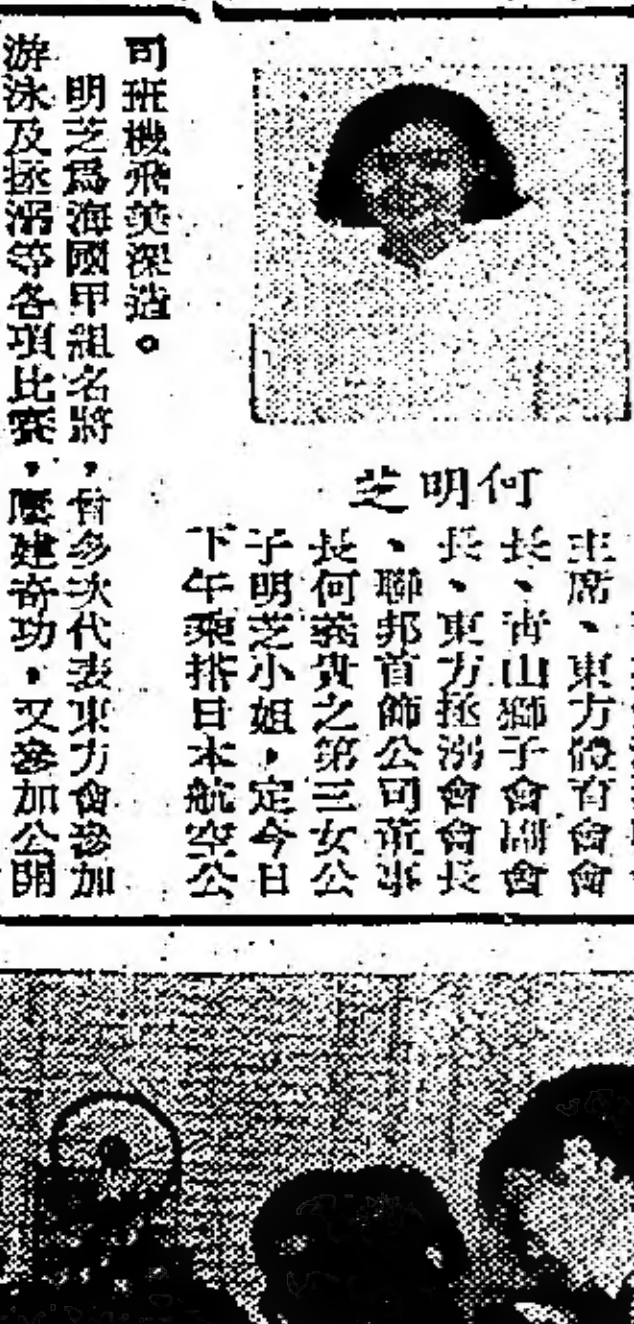 何明芝
主席、東方體育會會
長、青山獅子會副會
長、東方拯溺會會長
、聯邦首飾公司董事
長何義貴之第三女公
子明芝小姐，定今日
下午乘搭日本航空公
司班機飛英深造。
明芝爲海國甲組名將，曾多次代表東方會參加
游泳及拯溺等各項比賽，屢建奇功，又參加公開